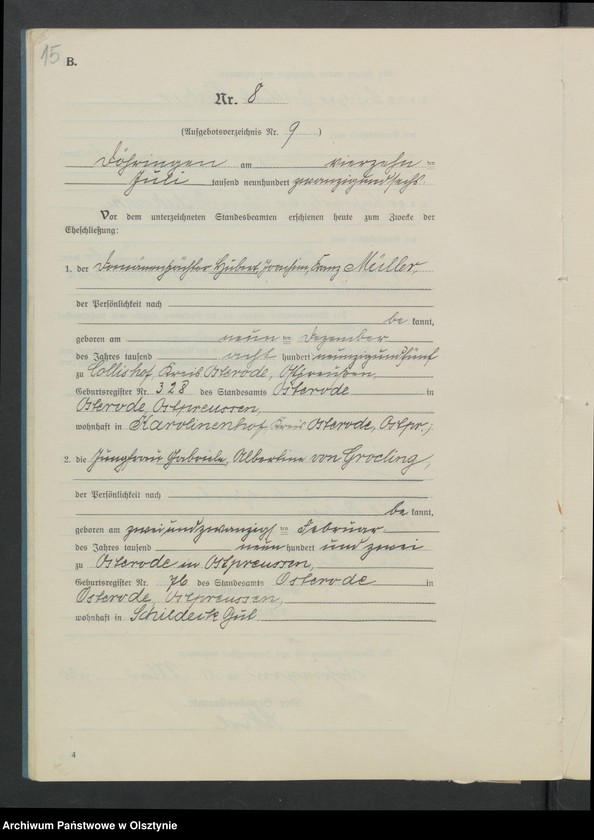 15
B.
Nr. 8
(Aufgebotsverzeichnis Nr. 9)
Döhringen am vierzehn ten
Juli tausend neunhundert zwanzigundsechs
Vor dem unterzeichneten Standesbeamten erschienen heute zum Zwecke der
Eheschließung:
1. der Domänenpächter Hubert, Joachim, Franz Müller,
der Persönlichkeit nach
be kannt,
geboren am neun ten Dezember
des Jahres tausend acht hundert neunzigundfünf
zu Collishof, Kreis Osterode, Ostpreußen
Geburtsregister Nr. 328 des Standesamts Osterode in
Osterode, Ostpreussen,
wohnhaft in Karolinenhof Kreis Osterode, Ostpr.;
2. die Jungfrau Gabriele, Albertine von Groeling,
der Persönlichkeit nach
be kannt,
geboren am zweiundzwanzigs ten Februar
des Jahres tausend neun hundert und zwei
zu Osterode in Ostpreussen,
Geburtsregister Nr. 76 des Standesamts Osterode in
Osterode, Ostpreussen,
wohnhaft in Schildeck Gut
4
Archiwum Państwowe w Olsztynie